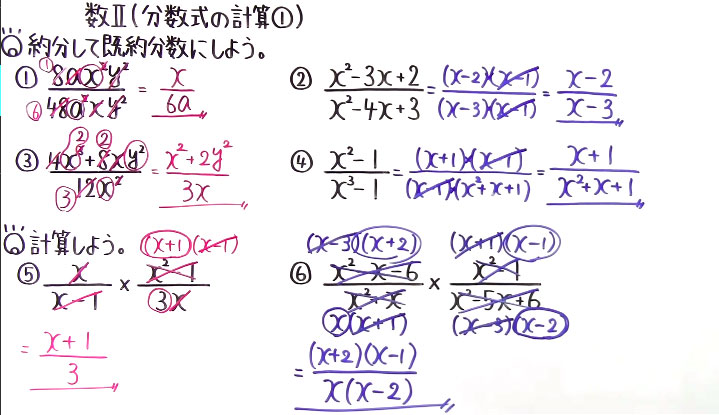 数Ⅱ(分数式の計算①)
Q 約分して既約分数にしよう。
① 8ax²y² / 48a²xy² = x / 6a
② x²-3x+2 / x²-4x+3 = (x-2)(x-1) / (x-3)(x-1) = x-2 / x-3
③ 4x³+8xy² / 12x² = x²+2y² / 3x
④ x²-1 / x³-1 = (x+1)(x-1) / (x-1)(x²+x+1) = x+1 / x²+x+1
Q 計算しよう。
(x+1)(x-1)
⑤ x / x-1 × x²-1 / 3x
= x+1 / 3
(x-3)(x+2) (x+1)(x-1)
⑥ x²-x-6 / x²+x × x²-1 / x²-5x+6
x(x+1) (x-3)(x-2)
= (x+2)(x-1) / x(x-2)